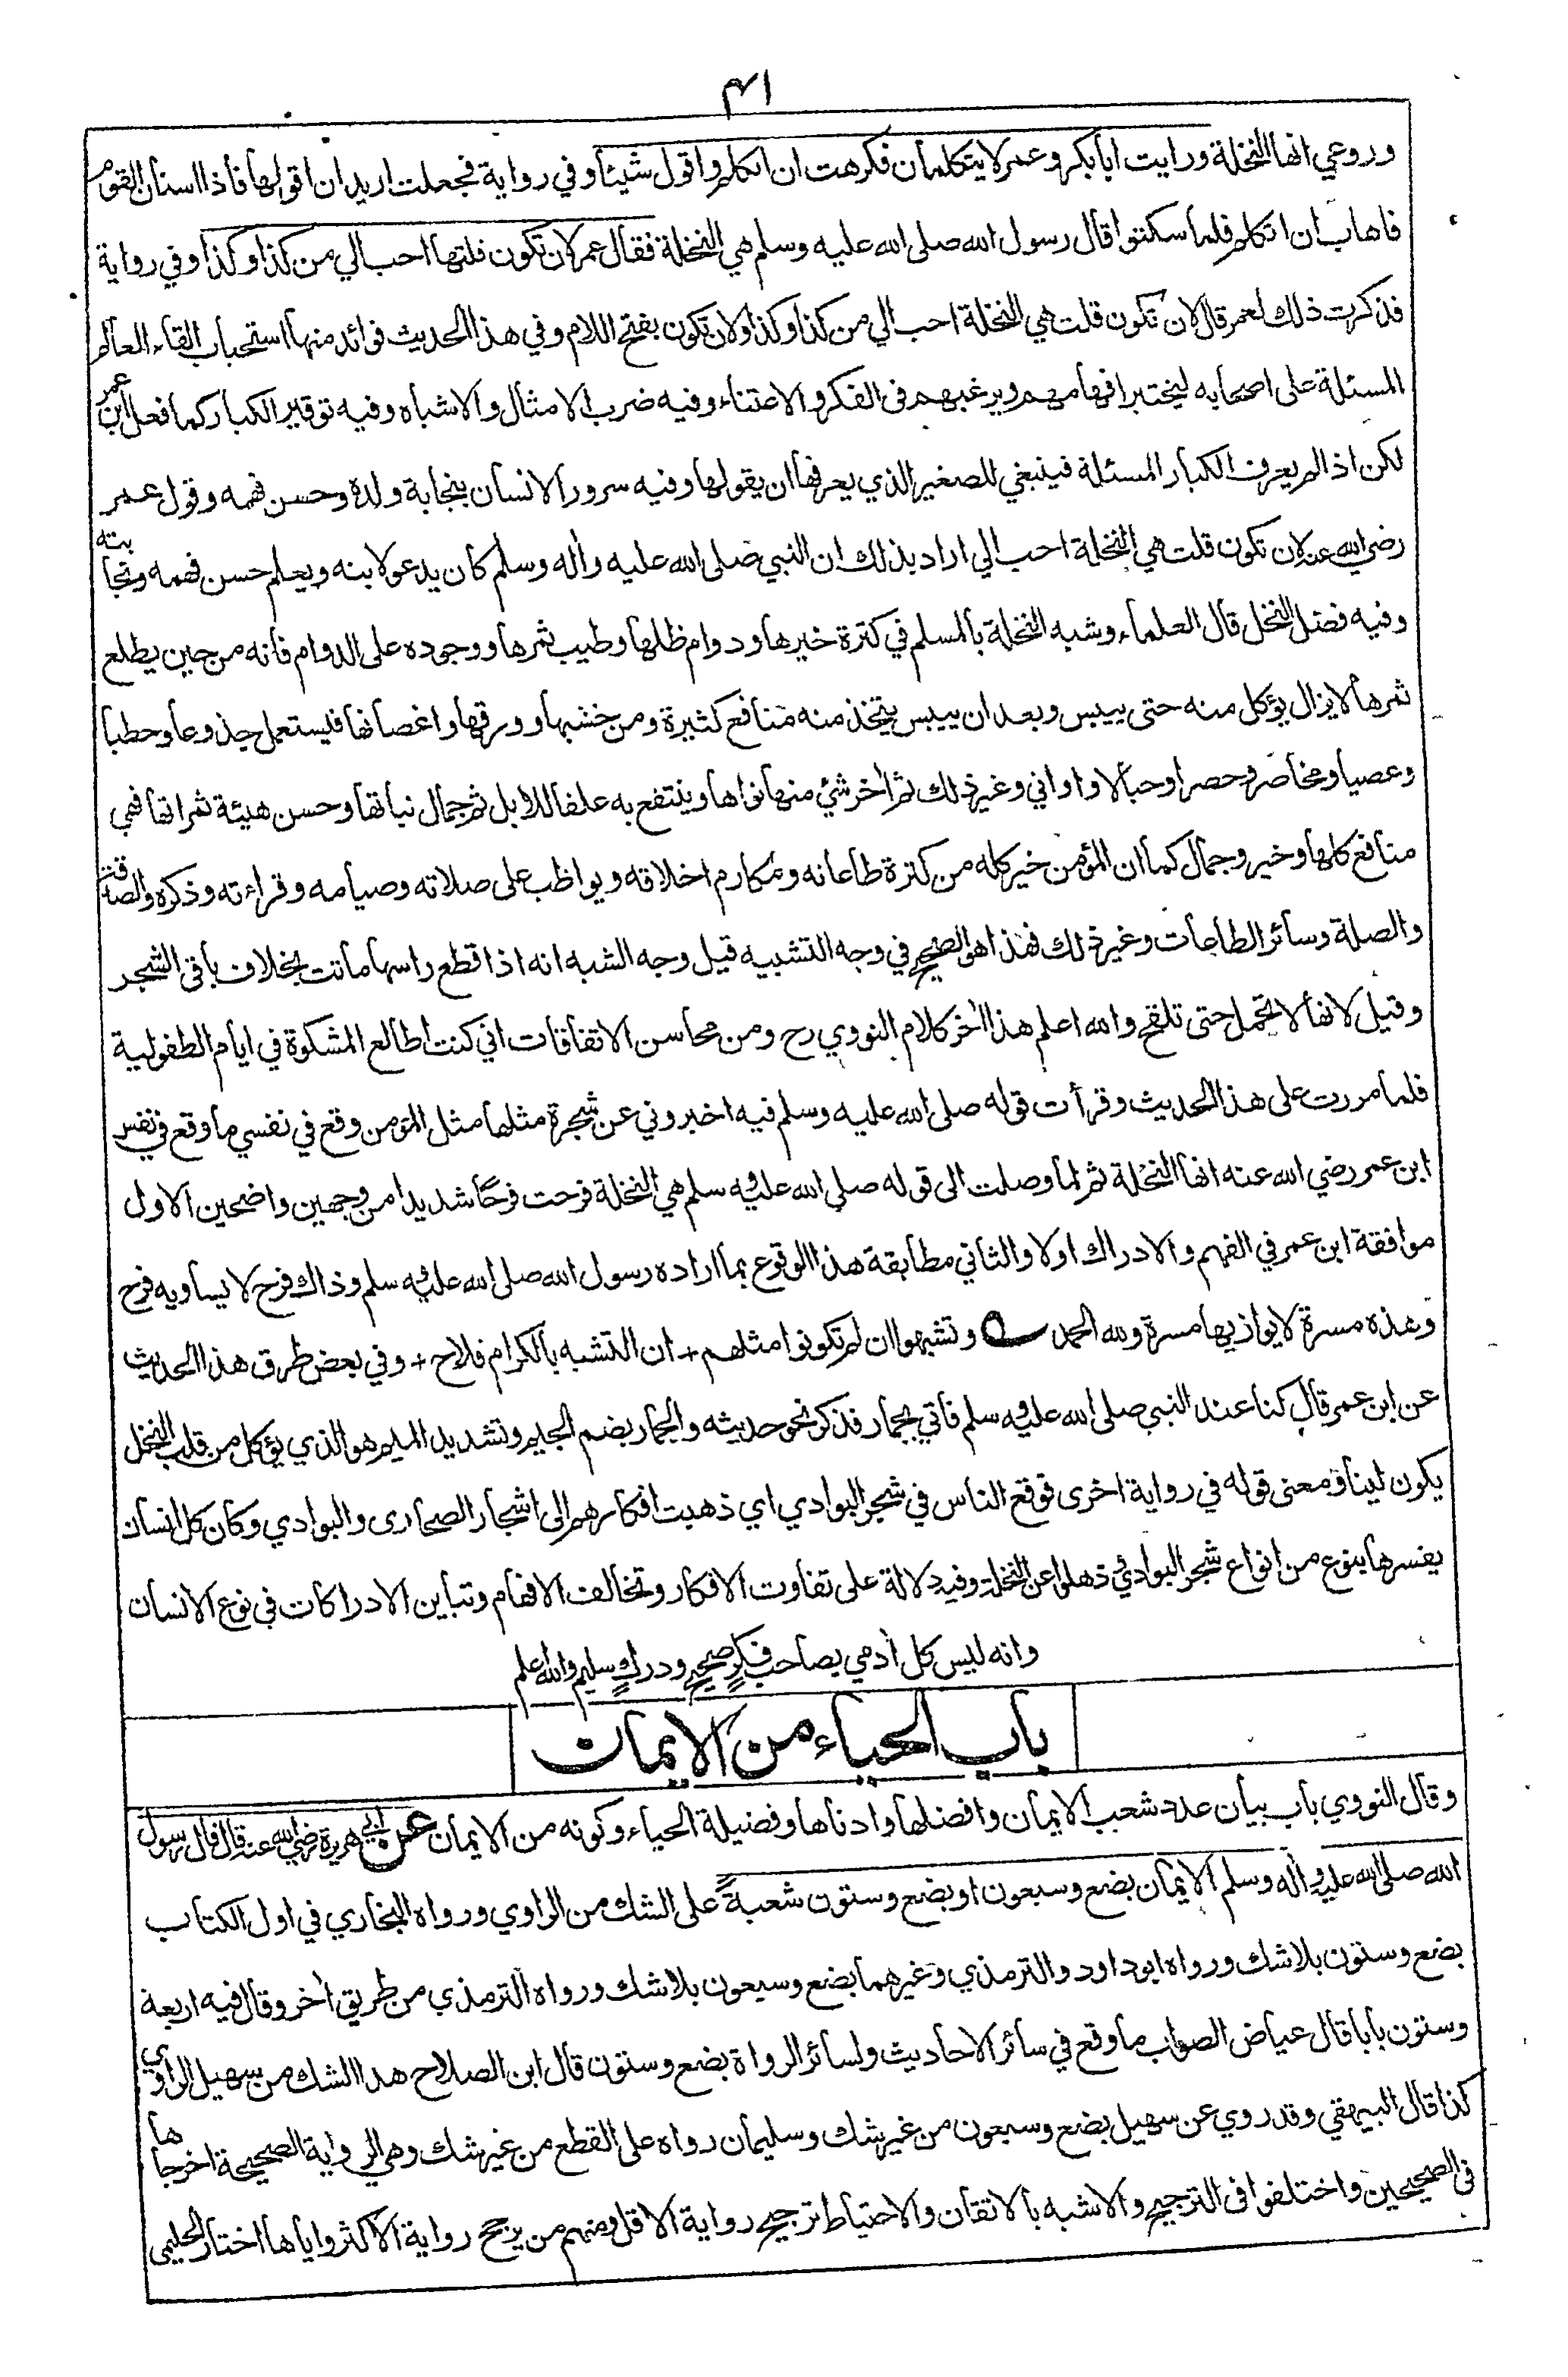 ٤١
وروعي انها النخلة ورايت ابابكر وعمر لا يتكلمان فكرهت ان اتكلم واقول شيئا وفي رواية فجعلت اريد ان اقولها فاذا اسنان القوم
فاهاب ان اتكلم فلما سكتوا قال رسول الله صلى الله عليه وسلم هي النخلة فقال عمر لان تكون قلتها احب الي من كذا وكذا وفي رواية
فذكرت ذلك لعمر قال لان تكون قلت هي النخلة احب الي من كذا وكذا ولان تكون بفتح اللام وفي هذا الحديث فوائد منها استحباب القاء العالم
المسئلة على اصحابه ليختبر افهامهم ويرغبهم فى الفكر والاعتناء وفيه ضرب الامثال والاشباه وفيه توقير الكبار كما فعل ابن عمر
لكن اذا لم يعرف الكبار المسئلة فينبغي للصغير الذي يعرفها ان يقولها وفيه سرور الانسان بنجابة ولده وحسن فهمه وقول عمر
رضي الله عنه لان تكون قلت هي النخلة احب الي اراد بذلك ان النبي صلى الله عليه واله وسلم كان يدعو لابنه ويعلم حسن فهمه ونجابته
وفيه فضل النخل قال العلماء وشبه النخلة بالمسلم في كثرة خيرها ودوام ظلها وطيب ثمرها ووجوده على الدوام فانه من حين يطلع
ثمرها لا يزال يؤكل منه حتى ييبس وبعد ان ييبس يتخذ منه منافع كثيرة ومن خشبها وورقها واغصانها فيستعمل جذوعا وحطبا
وعصيا ومخاصر وحصرا وحبالا واواني وغير ذلك ثم اخر شئ منها نواها وينتفع به علفا للابل ثم جمال نباتها وحسن هيئة ثمراتها فهي
منافع كلها وخير وجمال كما ان المؤمن خير كله من كثرة طاعاته ومكارم اخلاقه ويواظب على صلاته وصيامه وقراءته وذكره والصدقة
والصلة وسائر الطاعات وغير ذلك فهذا هو الصحيح في وجه التشبيه قيل وجه الشبه انه اذا قطع راسها ماتت بخلاف باقي الشجر
وقيل لانها لا تحمل حتى تلقح والله اعلم هذا اخر كلام النووي رح ومن محاسن الاتفاقات اني كنت اطالع المشكوة في ايام الطفولية
فلما مررت على هذا الحديث وقرأت قوله صلى الله عليه وسلم فيه اخبروني عن شجرة مثلها مثل المؤمن وقع في نفسي ما وقع في نفس
ابن عمر رضي الله عنه انها النخلة ثم لما وصلت الى قوله صلى الله عليه وسلم هي النخلة فرحت فرحا شديدا من وجهين واضحين الاول
موافقة ابن عمر في الفهم والادراك اولا والثاني مطابقة هذا الوقوع بما اراده رسول الله صلى الله عليه وسلم وذاك فرح لا يساويه فرح
وهذه مسرة لا يوازيها مسرة ولله الحمد وتشبهوا ان لم تكونوا مثلهم + ان التشبه بالكرام فلاح + وفي بعض طرق هذا الحديث
عن ابن عمر قال كنا عند النبي صلى الله عليه وسلم فاتي بجمار فذكر نحو حديثه والجمار بضم الجيم وتشديد الميم هو الذي يؤكل من قلب النخل
يكون لينا ومعنى قوله في رواية اخرى فوقع الناس في شجر البوادي اي ذهبت افكارهم الى اشجار الصحارى والبوادي وكان كل انسان
يفسرها بنوع من انواع شجر البوادي ذهلوا عن النخلة وفيه دلالة على تفاوت الافكار وتخالف الافهام وتباين الادراكات في نوع الانسان
وانه ليس كل ادمي بصاحب فكرٍ صحيحٍ ودركٍ سليمٍ والله اعلم
باب الحياء من الايمان
وقال النووي باب بيان عدد شعب الايمان وافضلها وادناها وفضيلة الحياء وكونه من الايمان عن ابي هريرة رضي الله عنه قال قال رسول
الله صلى الله عليه واله وسلم الايمان بضع وسبعون او بضع وستون شعبة على الشك من الراوي ورواه البخاري في اول الكتاب
بضع وستون بلا شك ورواه ابو داود والترمذي وغيرهما بضع وسبعون بلا شك ورواه الترمذي من طريق اخر وقال فيه اربعة
وستون بابا قال عياض الصواب ما وقع في سائر الاحاديث ولسائر الرواة بضع وستون قال ابن الصلاح هذا الشك من سهيل الراوي
كذا قال البيهقي وقد روي عن سهيل بضع وسبعون من غير شك وسليمان رواه على القطع من غير شك وهي الرواية الصحيحة اخرجاها
فى الصحيحين واختلفوا فى الترجيح والاشبه بالاتقان والاحتياط ترجيح رواية الاقل ومنهم من يرجح رواية الاكثر واياها اختار الحليمي